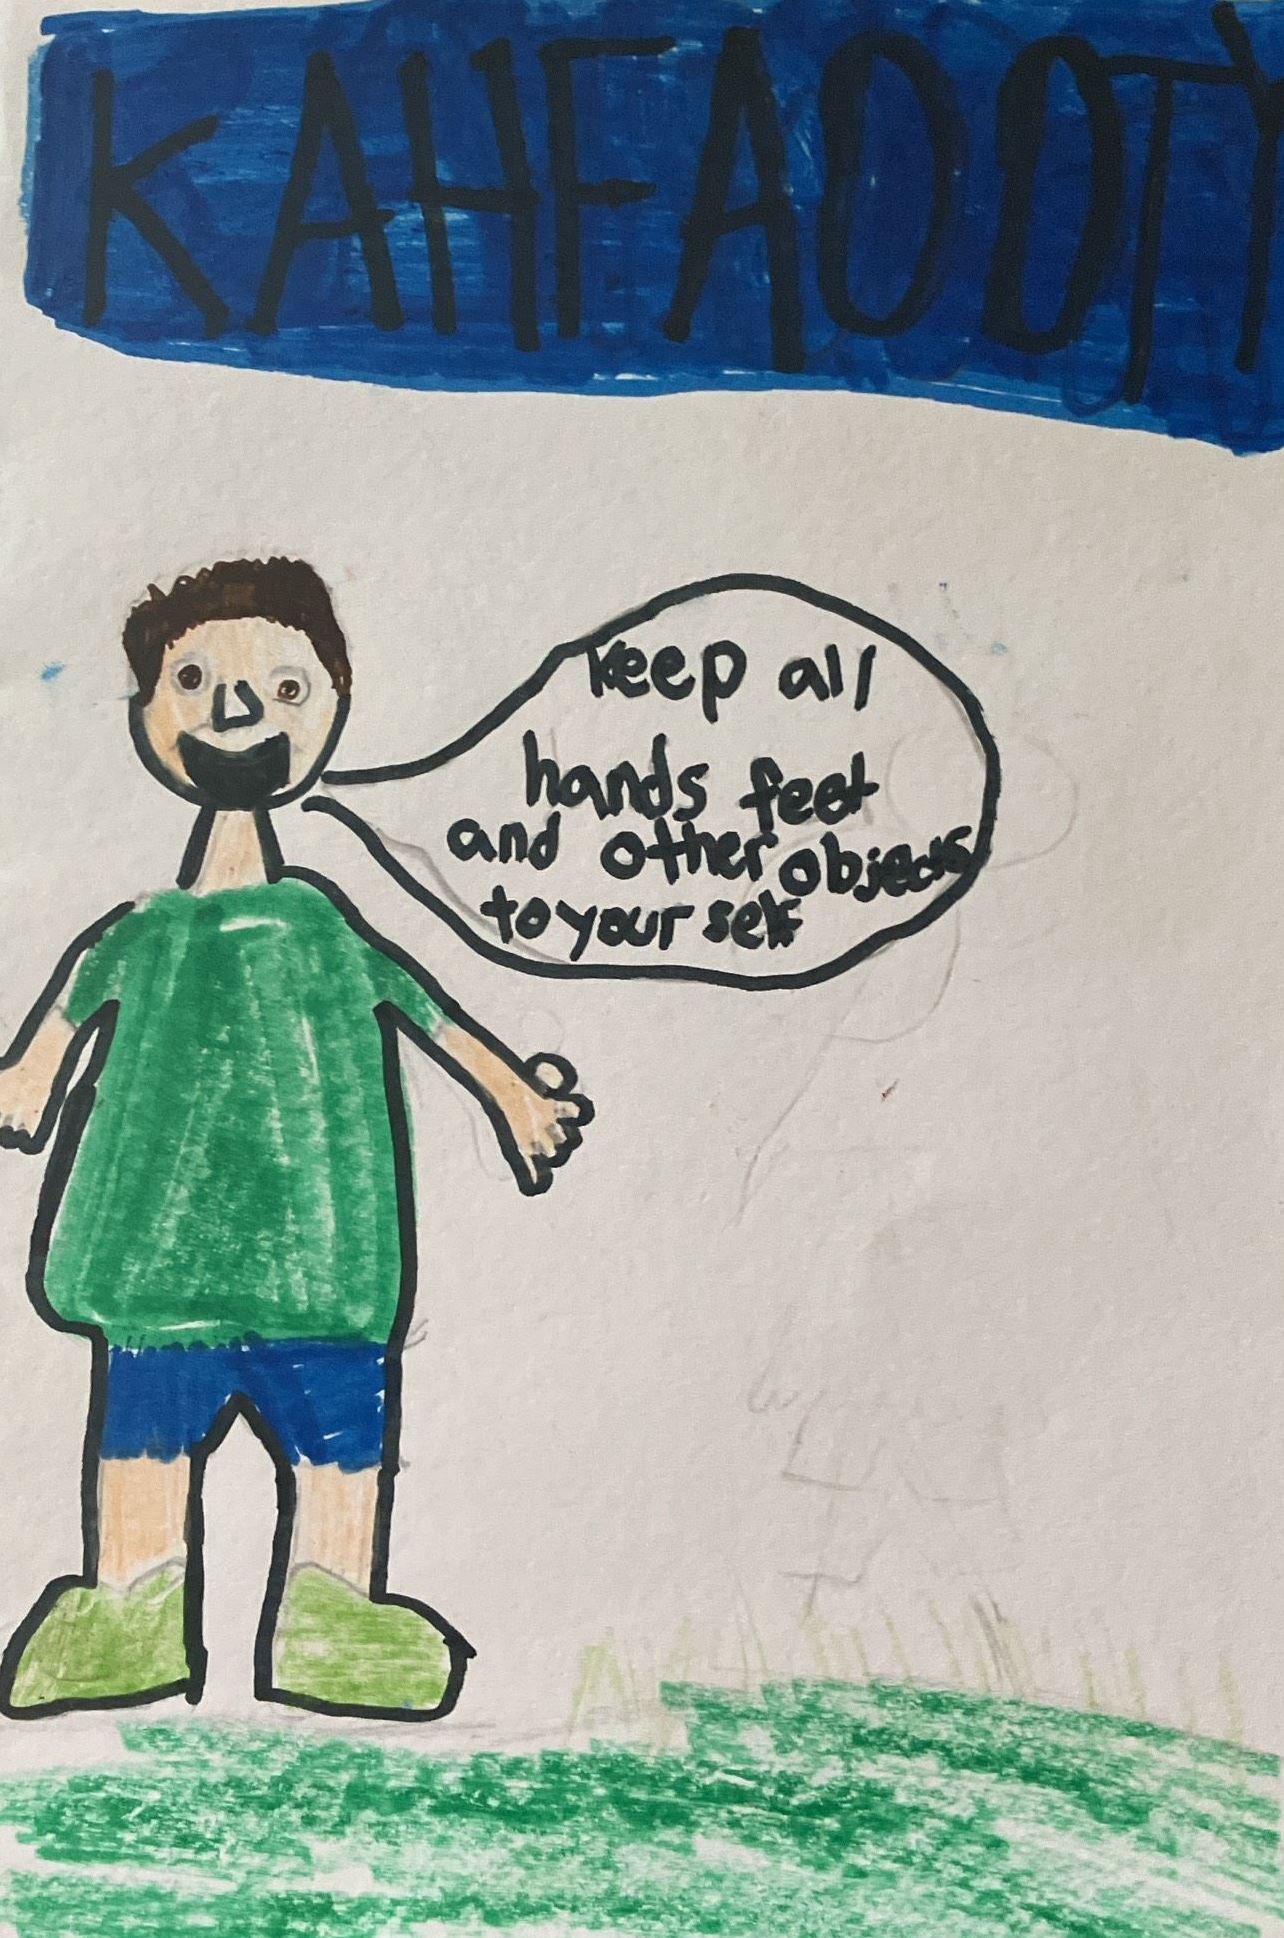 KAHFAOOTY
keep all
hands feet
and other objects
to your self